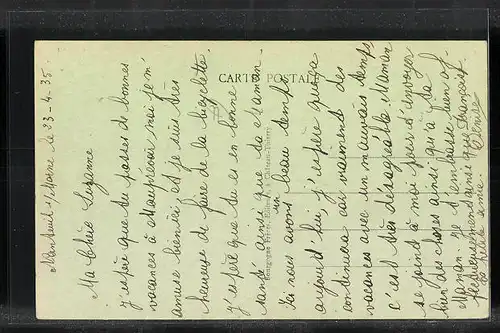 CARTE POSTALE
Nanteuil s/Marne le 23-4-35.
Ma Chère Suzanne
J'espère que tu passes de bonnes
vacances à Maupievoir moi je m'
amuse bien ici, et je suis très
heureuse de faire de la bicyclette.
J'espère que tu es en bonne
santé ainsi que ta Maman.
Ici nous avons un beau temps
aujourd'hui, j'espère qu'il
continuera car vraiment des
vacances avec un mauvais temps
c'est très désagréable. Maman
se joint à moi pour t'envoyer
bien des choses ainsi qu'à ta
Maman. Je t'embrasse bien af-
fectueusement ainsi que Françoise.
Ta petite amie
Denise
Bourgogne Frères, Éditeurs, à Château-Thierry